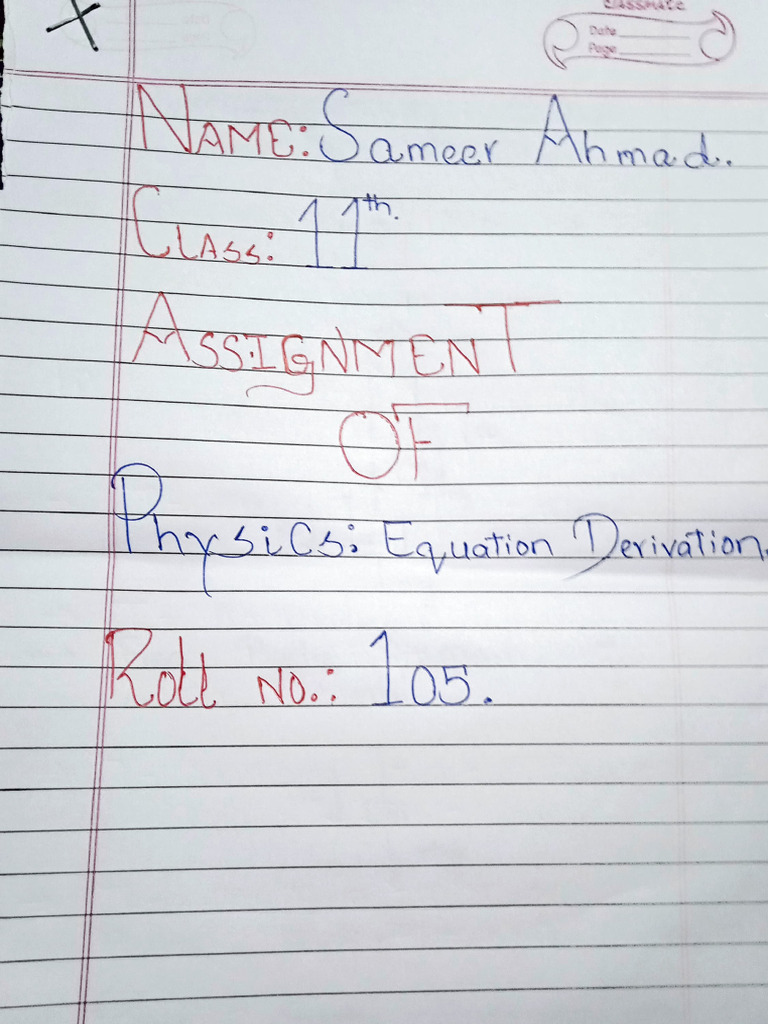 CLASSMATE
Date
Page
NAME: Sameer Ahmad.
CLASS: 11th.
ASSIGNMENT
OF
Physics: Equation Derivation.
Roll NO.: 105.